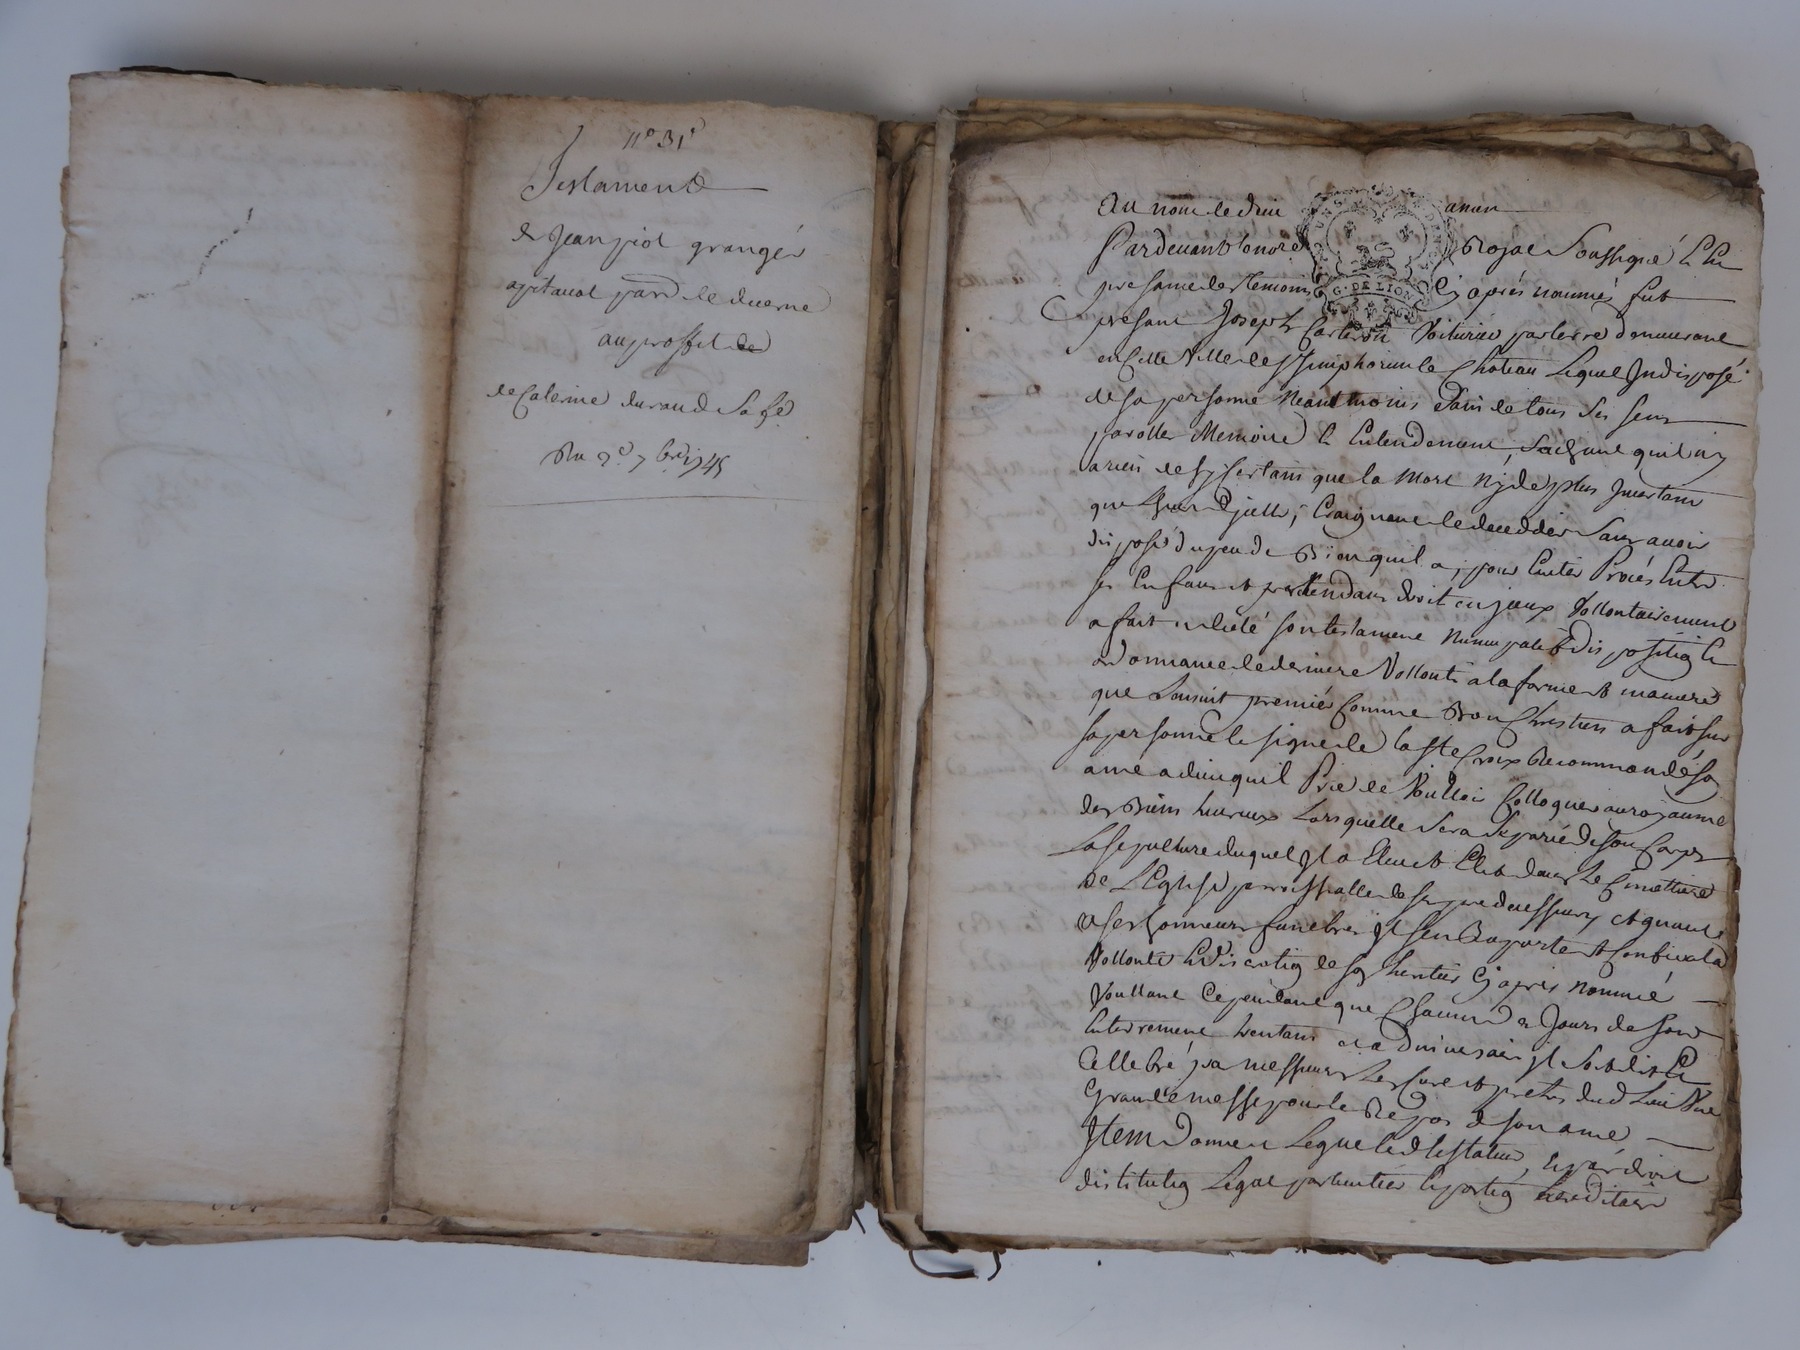 n° 31
Testament
de Jean piot grangér
a pitaval parr de duerne
au proffit de
de Caterine durand sa fe
Du 9e 7bre 1745
Au nom de dieu amen
Pardevant le no.re Royal Soussigné & En
presance des temoins Cy après nommés fut
presant Joseph Carteron Voiturier par terre demeurant
en Cette Ville de St Simphorien le Chateau Lequel Indisposé
de sa personne Neantmoins Sain de tous Ses Sens
parolle Memoire & Entendement, Sachant quil ny
a rien de sy Certain que la Mort Ny de plus Incertain
que Lheure d'jcelle, Craignant de decedder Sans avoir
disposé du peu de Bien quil a, pour Eviter Procés Entre
ses Enfans et pretendans droit en jceux Vollontairement
a fait et dicté son testament Nuncupatif disposition &
ordonnance de derniere Vollonté a la forme et maniere
que Sensuit premier Comme Bon Chrestien a fait sur
sa personne le signe de la Ste Croix Recommandé sa
ame a dieu quil Prie de Voulloir Colloquer au royaume
des Bien heureux Lors quelle Sera Separée de son Corps
La sepulture duquel Jl a Eleu et Elit dans Le Cimettiere
de L'Eglise parroissialle de ses predecesseurs, et quant
a ses honneurs funebres Jl sen Raporte et Confie a la
Vollonté & discretion de son heritier Cy après nommé
Voullant Cependant que Chacun des Jours de son
Enterrement trentain et adniversaire jl Soit dit &
Cellebré par messieurs Les Curé et pretres dud Lieu Une
Grande messe pour le Repos de son ame
Jtem donne & Legue led testateur, & par droit
dinstitution Legat particulier & portion hereditaire
G. DE LION